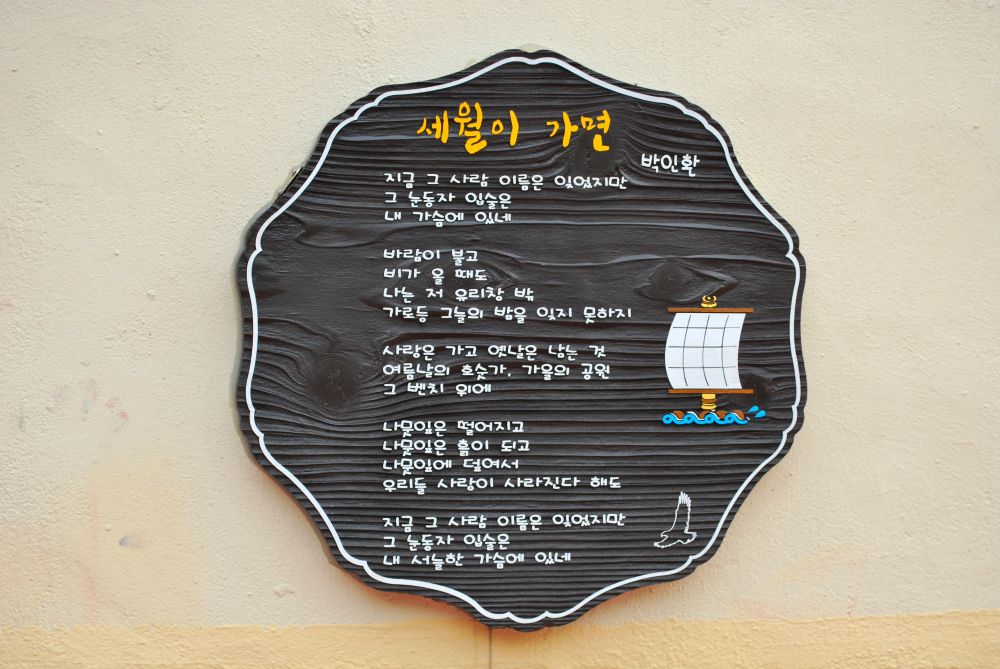 세월이 가면
박인환
지금 그 사람 이름은 잊었지만
그 눈동자 입술은
내 가슴에 있네
바람이 불고
비가 올 때도
나는 저 유리창 밖
가로등 그늘의 밤을 잊지 못하지
사랑은 가고 옛날은 남는 것
여름날의 호숫가, 가을의 공원
그 벤치 위에
나뭇잎은 떨어지고
나뭇잎은 흙이 되고
나뭇잎에 덮여서
우리들 사랑이 사라진다 해도
지금 그 사람 이름은 잊었지만
그 눈동자 입술은
내 서늘한 가슴에 있네